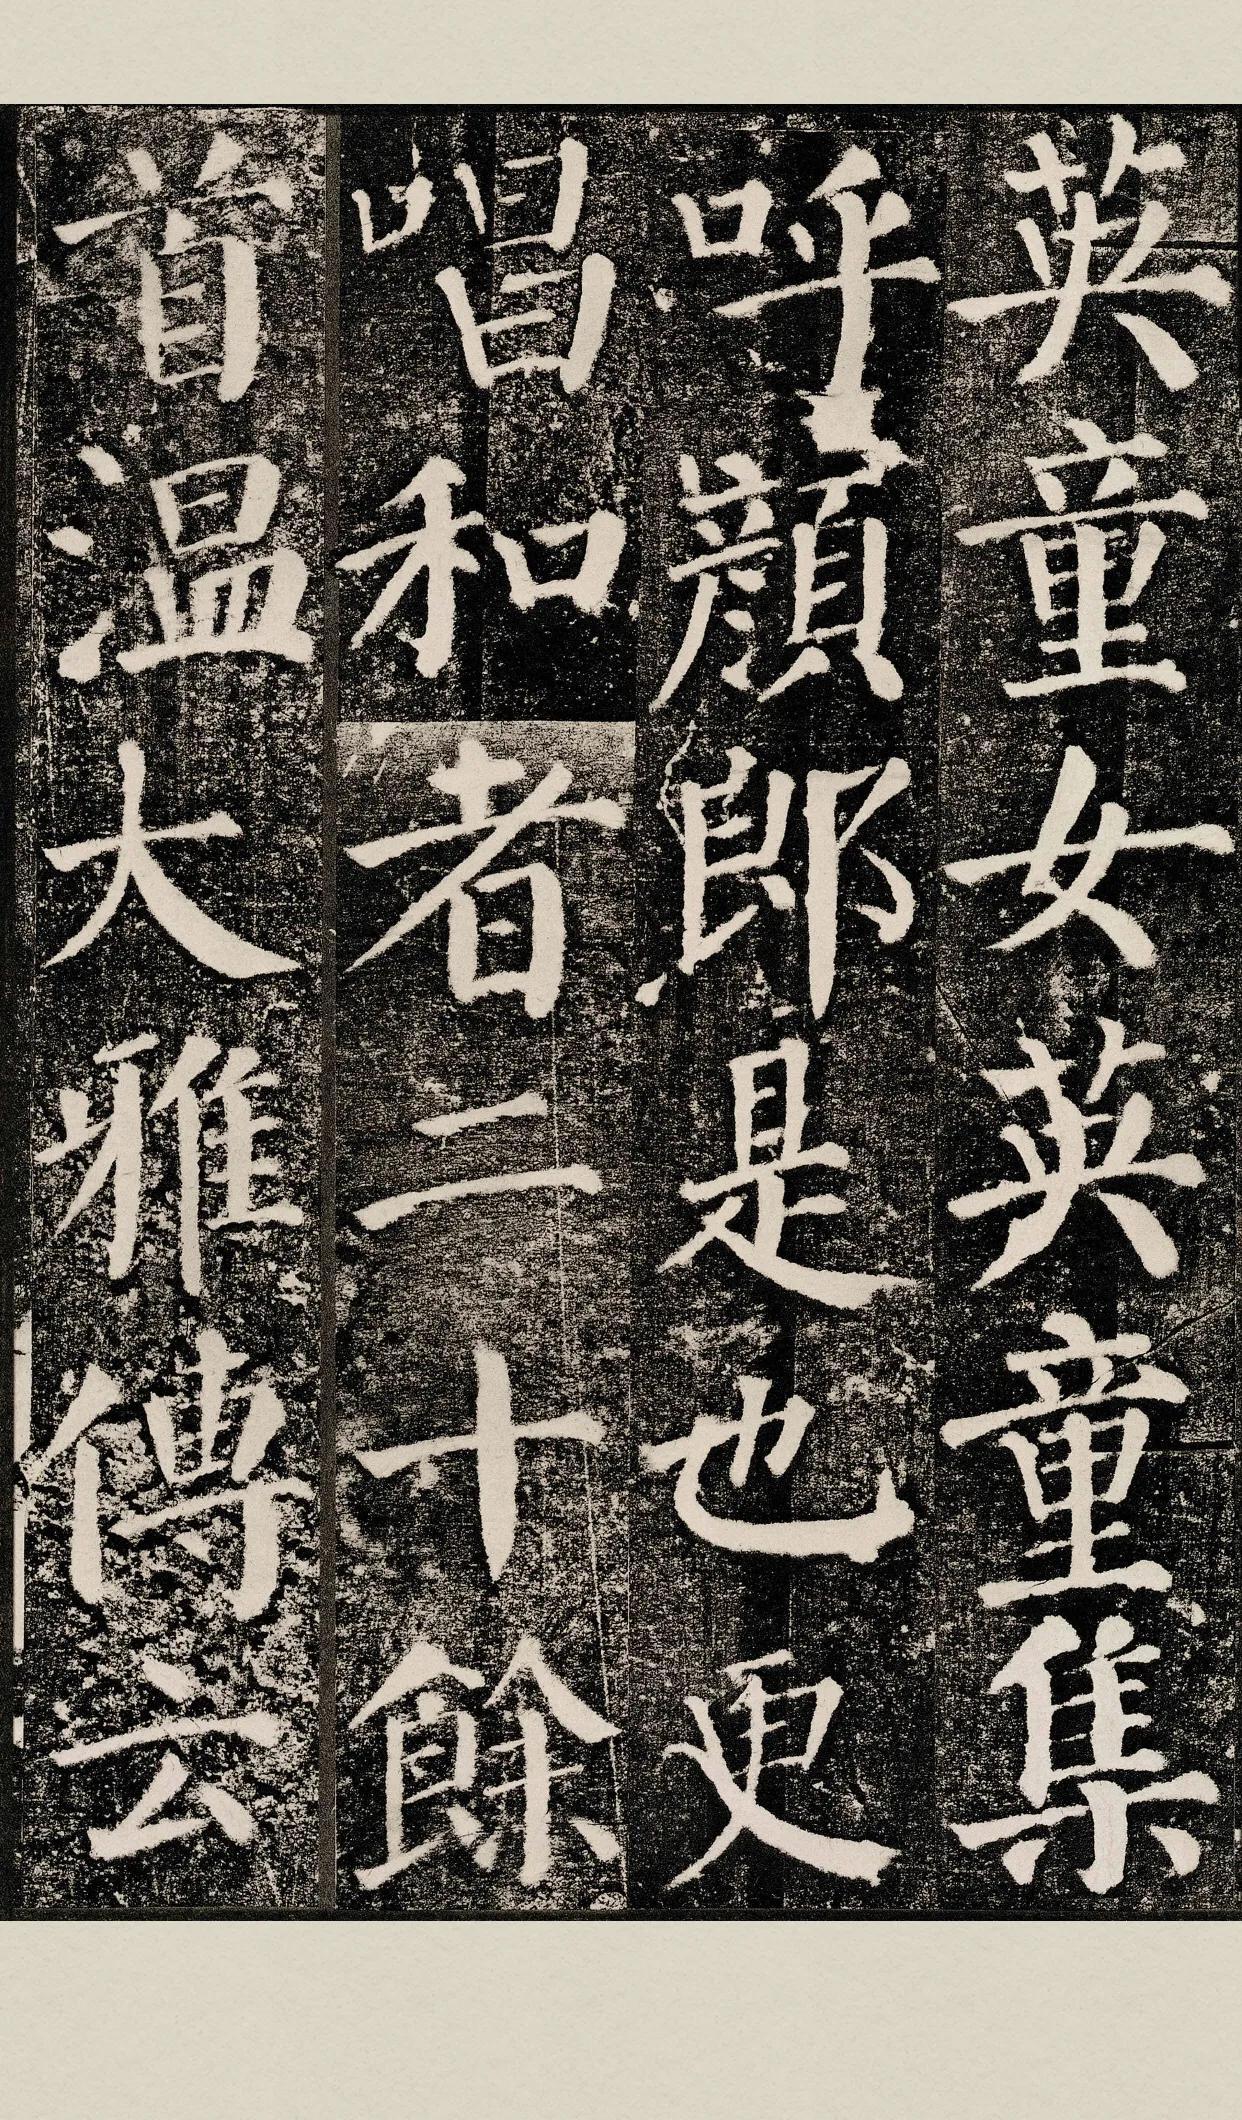 英童女英童集
呼顔郎是也更
唱和者二十餘
首温大雅傳云